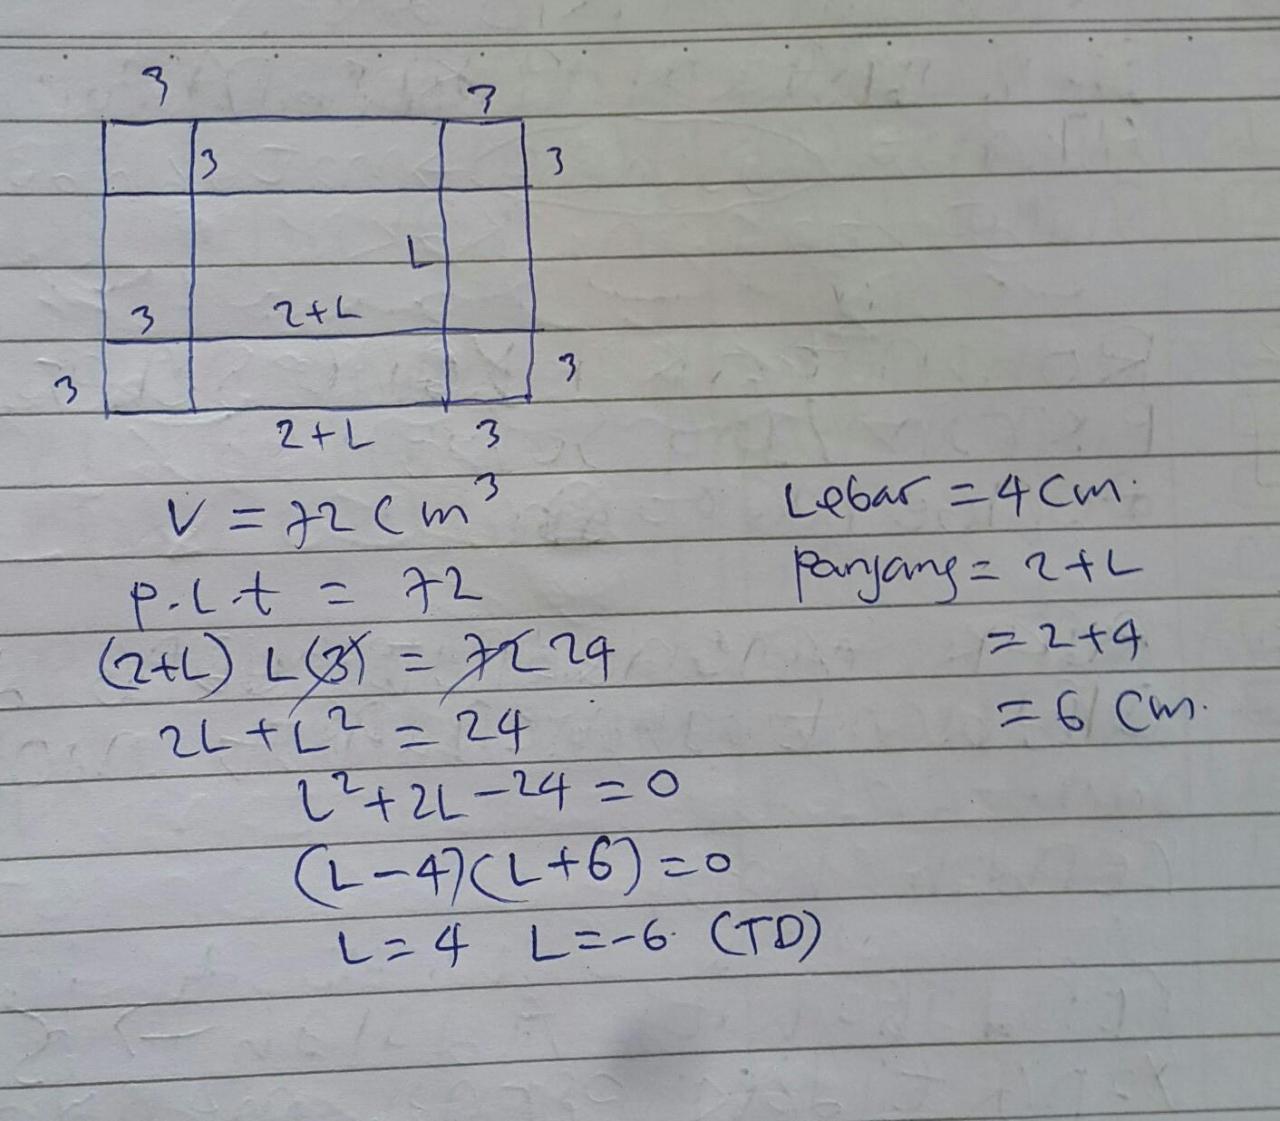 3 3
3 3
L
3 2+L
3 3
2+L 3
V = 72 Cm³
P.L.t = 72
(2+L) L(3) = 72 24
2L + L² = 24
L²+2L-24=0
(L-4)(L+6)=0
L=4 L=-6 (TD)
Lebar = 4 Cm.
Panjang = 2+L
= 2+4
= 6 Cm.